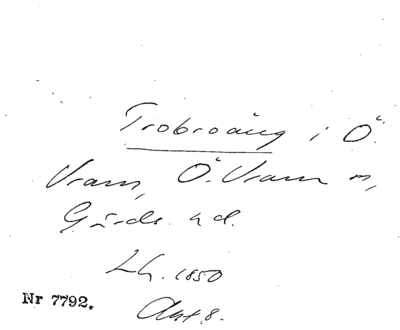 Trobroäng i Ö.
Vram, Ö. Vram sn,
Gärds hd.
Lh. 1850
Akt 8.
Nr 7792.